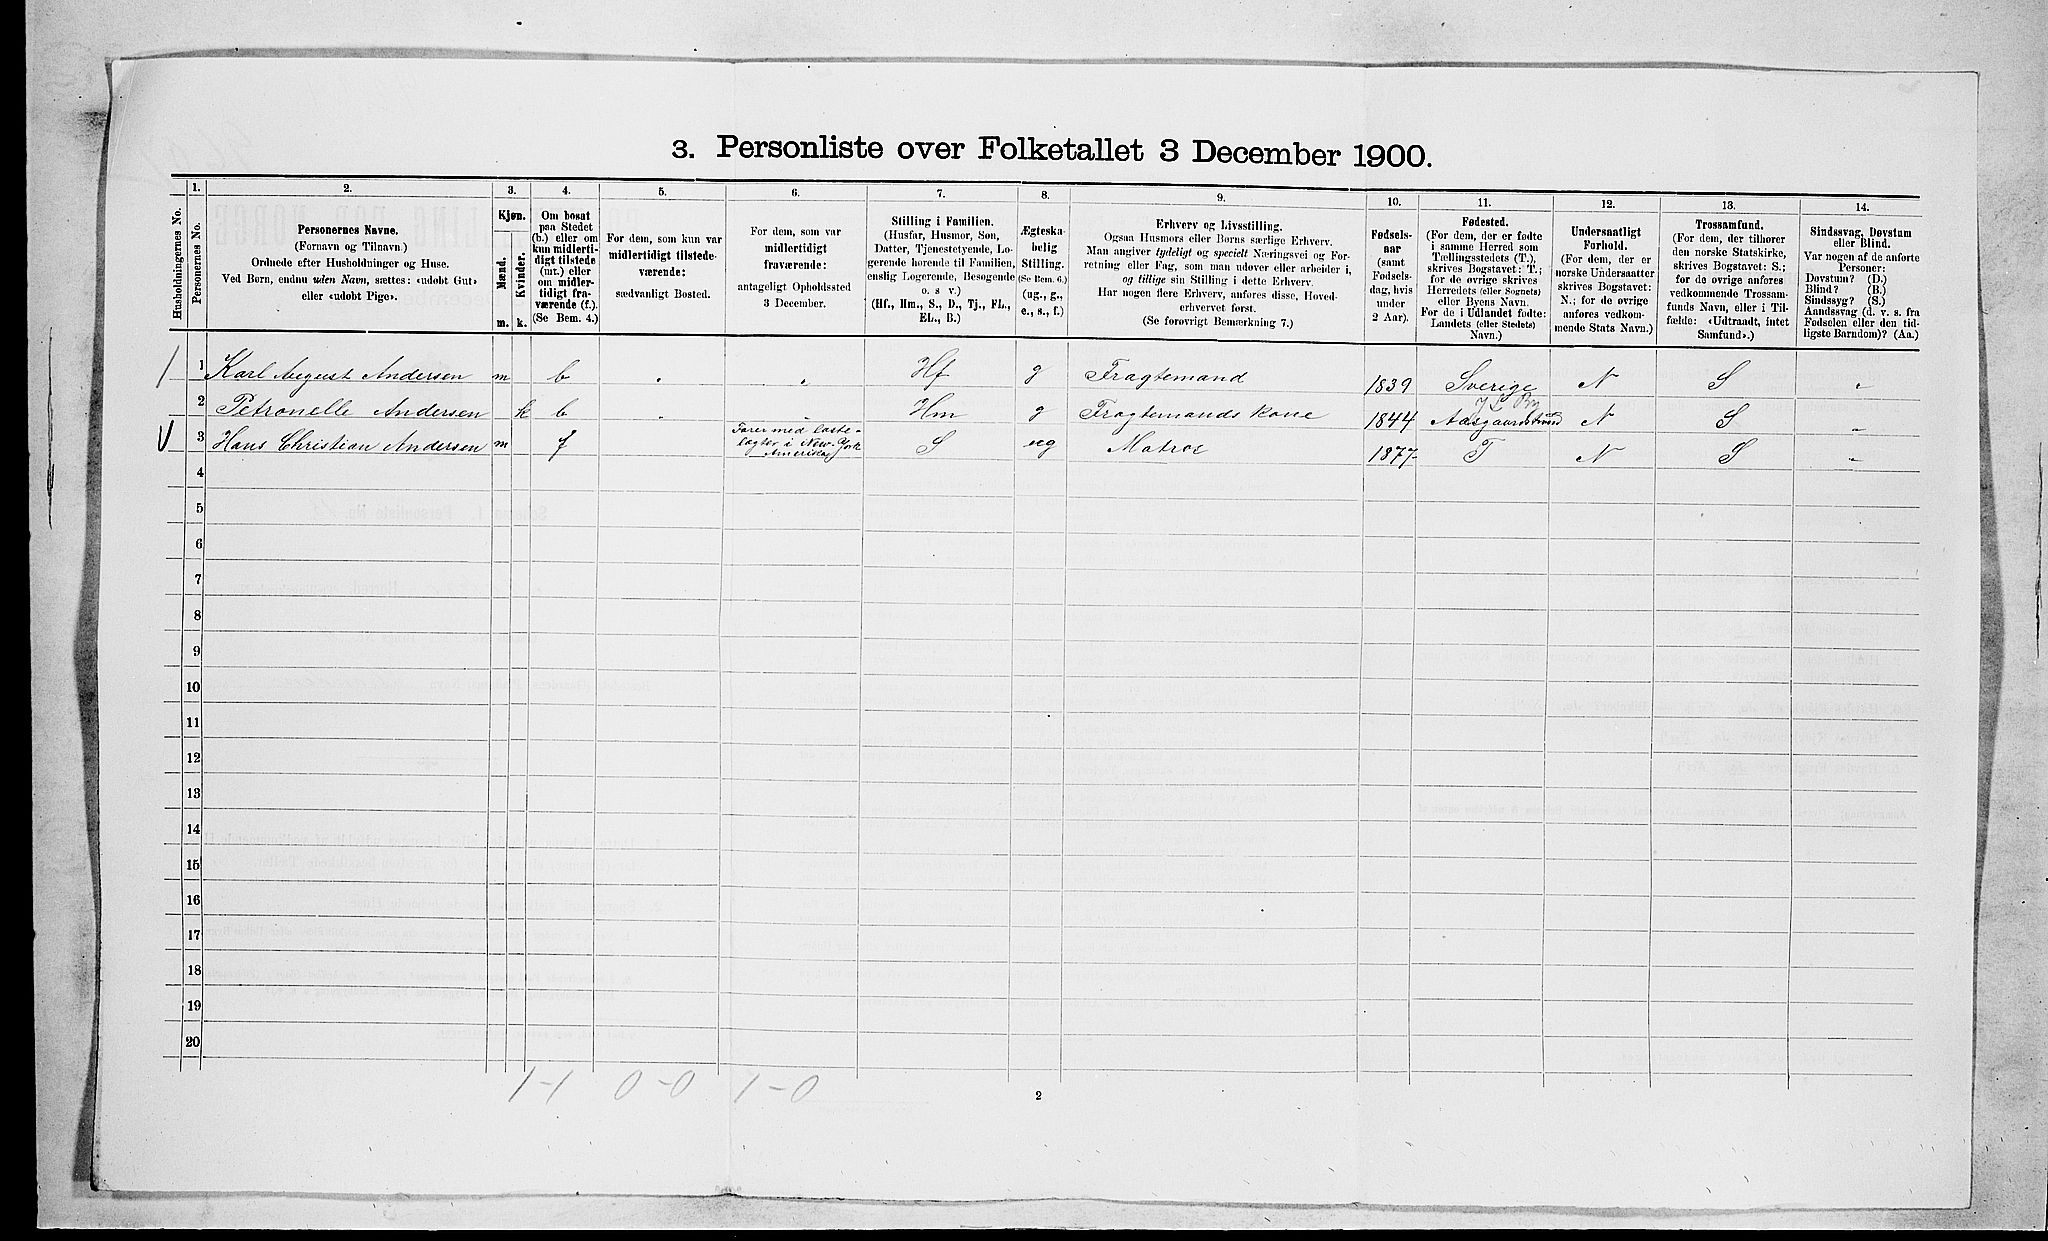 3. Personliste over Folketallet 3 December 1900.
1. 2. 3. 4. 5. 6. 7. 8. 9. 10. 11. 12. 13. 14.
Husholdningernes No.
Personernes No.
Personernes Navne.
(Fornavn og Tilnavn.)
Ordnede efter Husholdninger og Huse.
Ved Børn, endnu uden Navn, sættes: «udøbt Gut»
eller «udøbt Pige».
Kjøn.
Mænd.
Kvinder.
m. k.
Om bosat
paa Stedet
(b.) eller om
kun midlerti-
digt tilstede
(mt.) eller
om midler-
tidigt fra-
værende (f.).
(Se Bem. 4.)
For dem, som kun var
midlertidigt tilstede-
værende:
sædvanligt Bosted.
For dem, som var
midlertidigt
fraværende:
antageligt Opholdssted
3 December.
Stilling i Familien.
(Husfar, Husmor, Søn,
Datter, Tjenestetyende, Lo-
gerende hørende til Familien,
enslig Logerende, Besøgende
o. s v.)
(Hf., Hm., S., D., Tj., FL.,
EL., B.)
Ægteska-
belig
Stilling.
(Se Bem. 6.)
(ug., g.,
e., s., f.)
Erhverv og Livsstilling.
Ogsaa Husmors eller Børns særlige Erhverv.
Man angiver tydeligt og specielt Næringsvei og For-
retning eller Fag, som man udøver eller arbeider i,
og tillige sin Stilling i dette Erhverv.
Har nogen flere Erhverv, anføres disse, Hoved-
erhvervet først.
(Se forøvrigt Bemærkning 7.)
Fødsels-
aar
(samt
Fødsels-
dag, hvis
under
2 Aar).
Fødested.
(For dem, der er fødte
i samme Herred som
Tællingsstedets (T.),
skrives Bogstavet: T.;
for de øvrige skrives
Herredets (eller Sognets)
eller Byens Navn.
For de i Udlandet fødte:
Landets (eller Stedets)
Navn.)
Undersaatligt
Forhold.
(For dem, der er
norske Undersaatter
skrives Bogstavet:
N.; for de øvrige
anføres vedkom-
mende Stats Navn.)
Trossamfund.
(For dem, der tilhører
den norske Statskirke,
skrives Bogstavet: S.;
for de øvrige anføres
vedkommende Trossam-
funds Navn, eller i Til-
fælde: «Udtraadt, intet
Samfund».)
Sindssvag, Døvstum
eller Blind.
Var nogen af de anførte
Personer:
Døvstum? (D.)
Blind? (B.)
Sindssyg? (S.)
Aandssvag (d. v. s. fra
Fødselen eller den tid-
ligste Barndom)? (Aa.)
1 Karl August Andersen m b " " Hf g Fragtemand 1839 Sverige N S "
J L By
2 Petronelle Andersen k b " " Hm g Fragtemands kone 1844 Aasgaardstrand N S "
Farer med laste-
3 Hans Christian Andersen m f lagter i New-York S ug Matros 1877 T N S "
Amerika
4
5
6
7
8
9
10
11
12
13
14
15
16
17
18
19
20
1-1 0-0 1-0
2